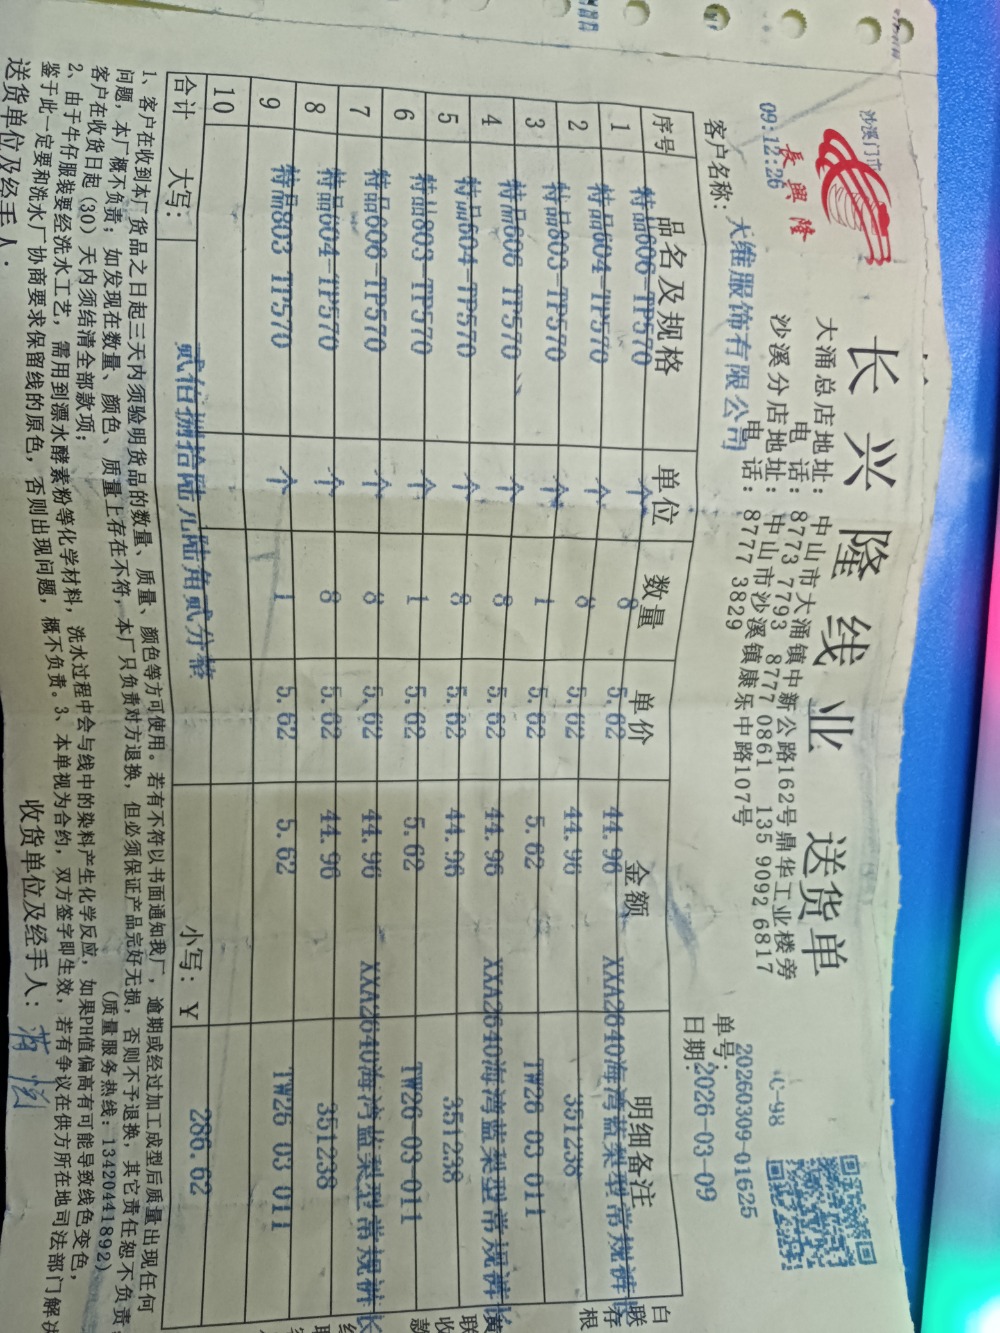 沙溪门市
長興隆
09:12:26
长兴隆线业 送货单
大涌总店地址：中山市大涌镇中新公路162号鼎华工业楼旁
电 话：8773 7793 8777 0861 135 9092 6817
沙溪分店地址：中山市沙溪镇康乐中路107号
电 话：8777 3829
C-98
单号：20260309-01625
客户名称：大维服饰有限公司
日期：2026-03-09
序号 品名及规格 单位 数量 单价 金额 明细备注
1 特品606-TP570 个 8 5.62 44.96 XXA2640海湾蓝梨型常规裤
2 特品604-TP570 个 8 5.62 44.96 351238
3 特品803-TP570 个 1 5.62 5.62 TW26 03 011
4 特品606-TP570 个 8 5.62 44.96 XXA2640海湾蓝梨型常规裤长
5 特品604-TP570 个 8 5.62 44.96 351238
6 特品803-TP570 个 1 5.62 5.62 TW26-03-011
7 特品606-TP570 个 8 5.62 44.96 XXA2640海湾蓝梨型常规裤长
8 特品604-TP570 个 8 5.62 44.96 351238
9 特品803 TP570 个 1 5.62 5.62 TW26 03 011
10
合计 大写：贰佰捌拾陆元陆角贰分整 小写：￥ 286.62
1、客户在收到本厂货品之日起三天内须验明货品的数量、质量、颜色等方可使用。若有不符以书面通知我厂，逾期或经过加工成型后质量出现任何
问题，本厂概不负责；如发现在数量、颜色、质量上存在不符，本厂只负责对方退换，但必须保证产品完好无损，否则不予退换，其它责任恕不负责；
客户在收货日起（30）天内须结清全部款项； （质量服务热线：13420441892）
2、由于牛仔服装要经洗水工艺，需用到漂水酵素粉等化学材料，洗水过程中会与线中的染料产生化学反应，如果PH值偏高有可能导致线色变色，
鉴于此一定要和洗水厂协商要求保留线的原色，否则出现问题，概不负责。3、本单视为合约，双方签字即生效，若有争议在供方所在地司法部门解决
送货单位及经手人： 收货单位及经手人：
白联存根